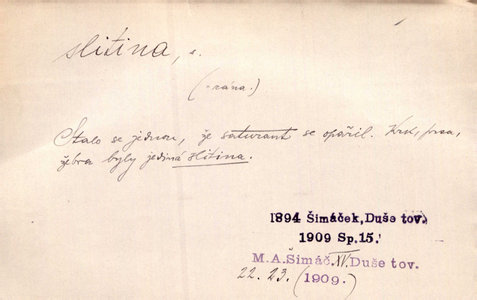 slitina, s.
(= rána.)
Stalo se jednou, že saturant se opařil. Krk, prsa,
žebra byly jediná slitina.
1894 Šimáček, Duše tov.
1909 Sp.15.
M.A.Šimáč. XV. Duše tov.
22. 23. (1909.)